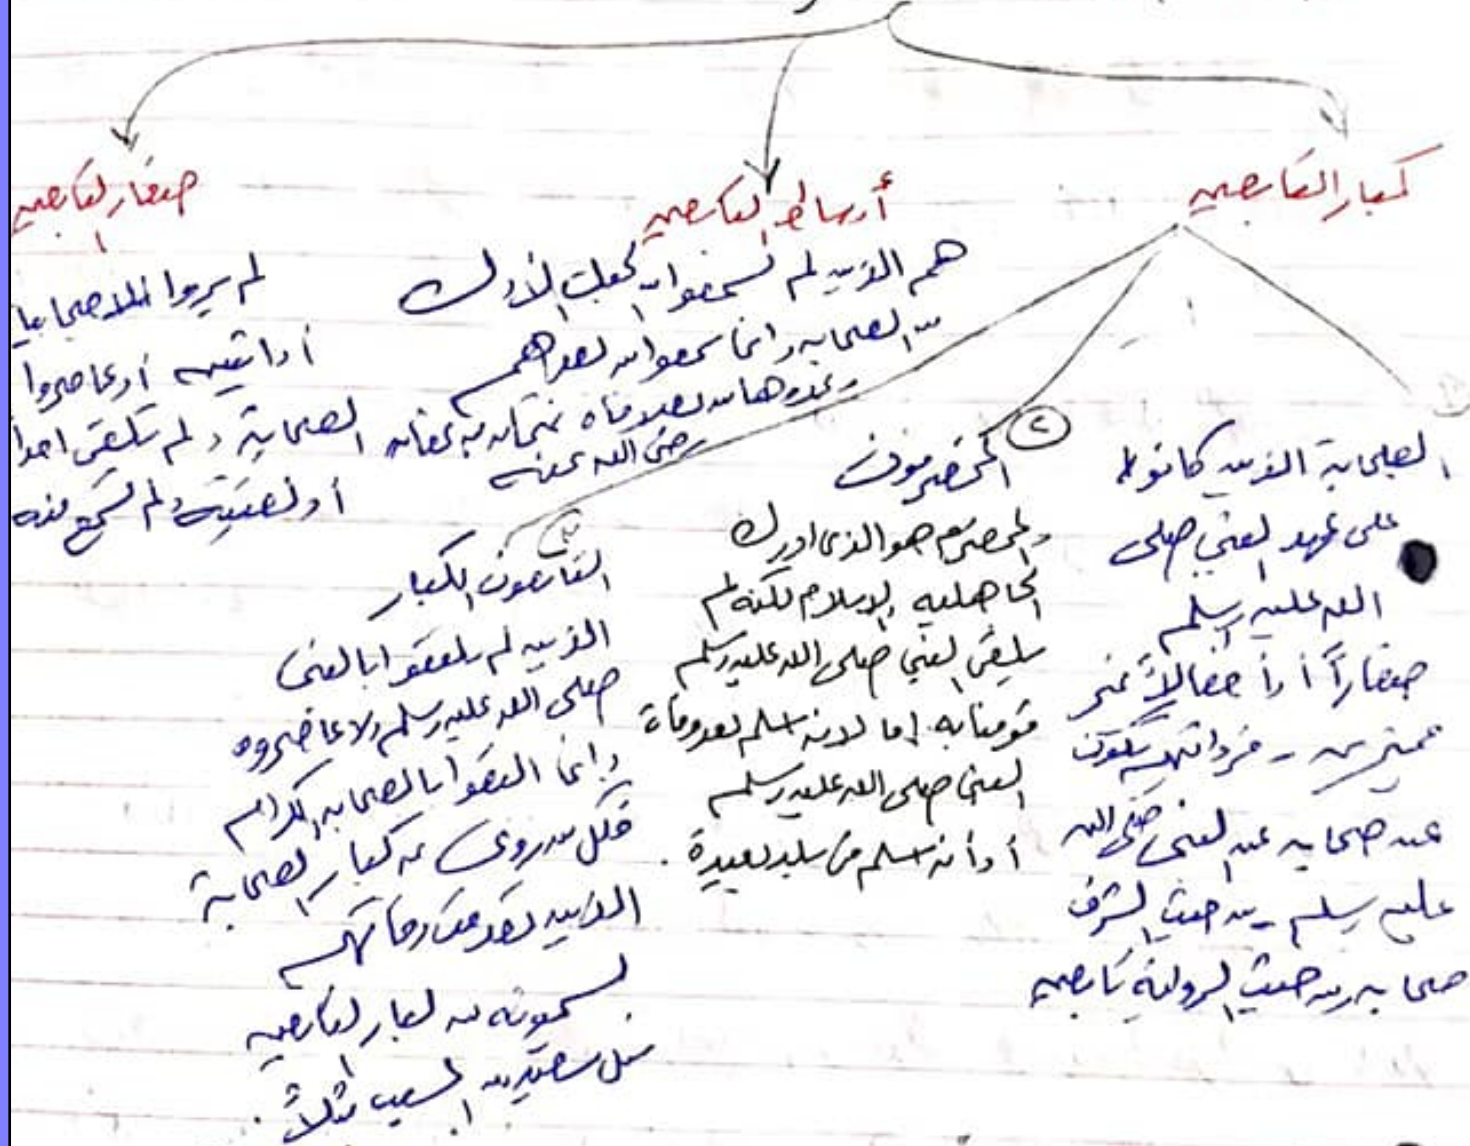 كبار التابعين
الصحابة الذين كانوا
على عهد النبي صلى
الله عليه وسلم
صغاراً أو أطفالاً غير
مميزين - فرواتهم تكون
عن صحابه عن النبي صلى الله
عليه وسلم - من حيث الشرف
صحابه ومن حيث الرواية تابعين
٢
المخضرمون
والمخضرم هو الذي ادرك
الجاهليه والاسلام لكنه لم
يلتقي النبي صلى الله عليه وسلم
مؤمنا به إما لانه اسلم بعد وفاة
النبي صلى الله عليه وسلم
أو أنه اسلم في بلد بعيدة .
٣
التابعون الكبار
الذين لم يلتقوا بالنبي
صلى الله عليه وسلم ولا عاصروه
وإنما التقوا بالصحابه الكرام
فكل من روى عن كبار الصحابة
الذين تقدمت وفاتهم
يسمونه من كبار التابعين
مثل سعيد بن المسيب مثلاً .
أوساط التابعين
هم الذين لم يسمعوا من تلك الأول
من الصحابه وانما سمعوا من بعدهم
وحدوها من بعد وفاه عثمان بن عفان
رضي الله عنه
صغار التابعين
لم يروا إلا صحابيا
أو اثنين أو عاصروا
الصحابة ولم تلتقي احدا
أو لقيته ولم تسمع منه